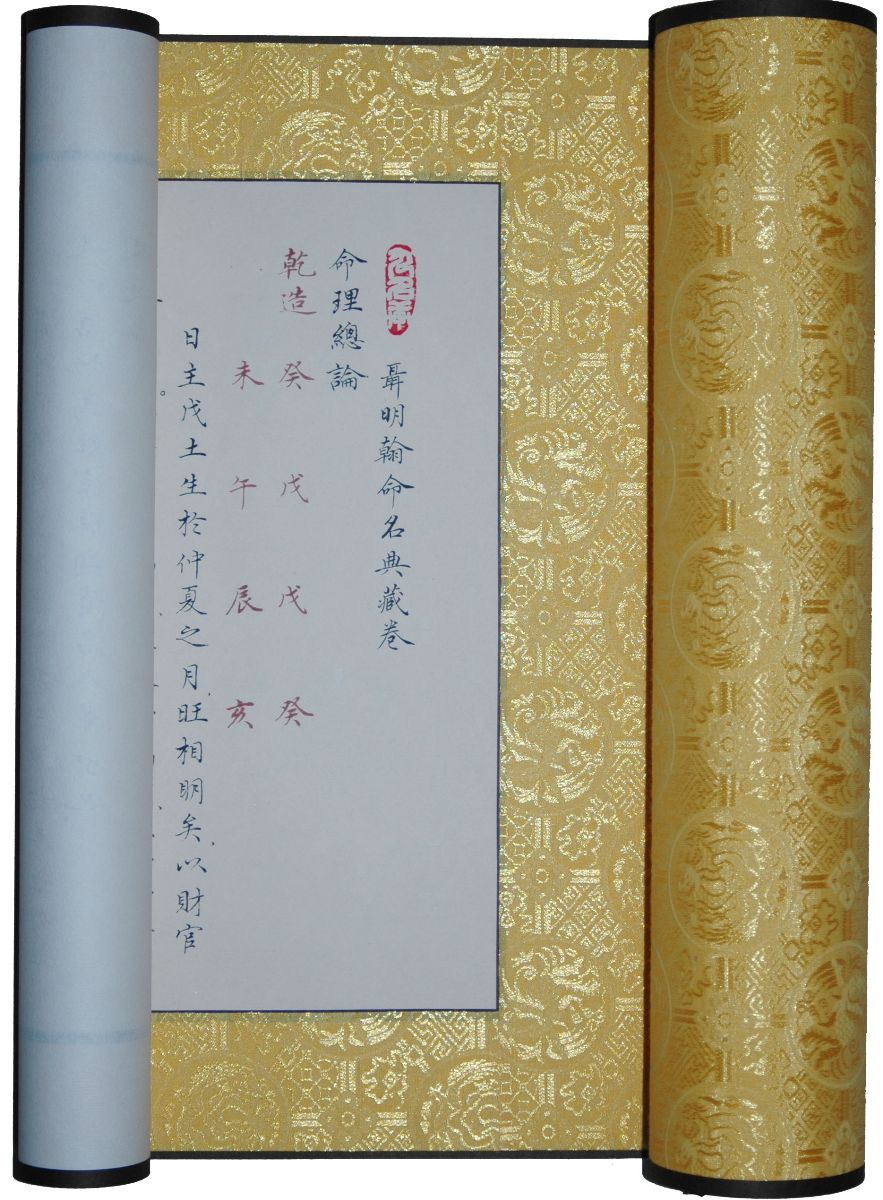 聶明翰命名典藏卷
命理總論
乾造 癸 戊 戊 癸
未 午 辰 亥
日主戊土生於仲夏之月，旺相明矣，以財官